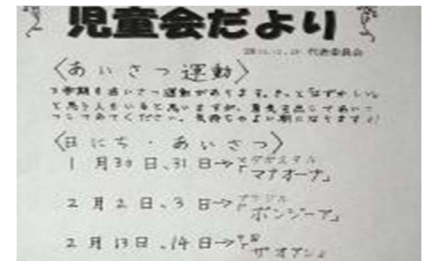 児童会だより
代表委員会
〈あいさつ運動〉
3学期もあいさつ運動があります。きっとはずかしいな
と思う人もいると思いますが、勇気を出してあいさ
つしてみてください。気持ちのよい朝になりますよ!
〈日にち・あいさつ〉
1月30日、31日→マダガスカル
「マナオーナ」
2月2日、3日→ブラジル
「ボンジーア」
2月13日、14日→中国
「ザオアン」